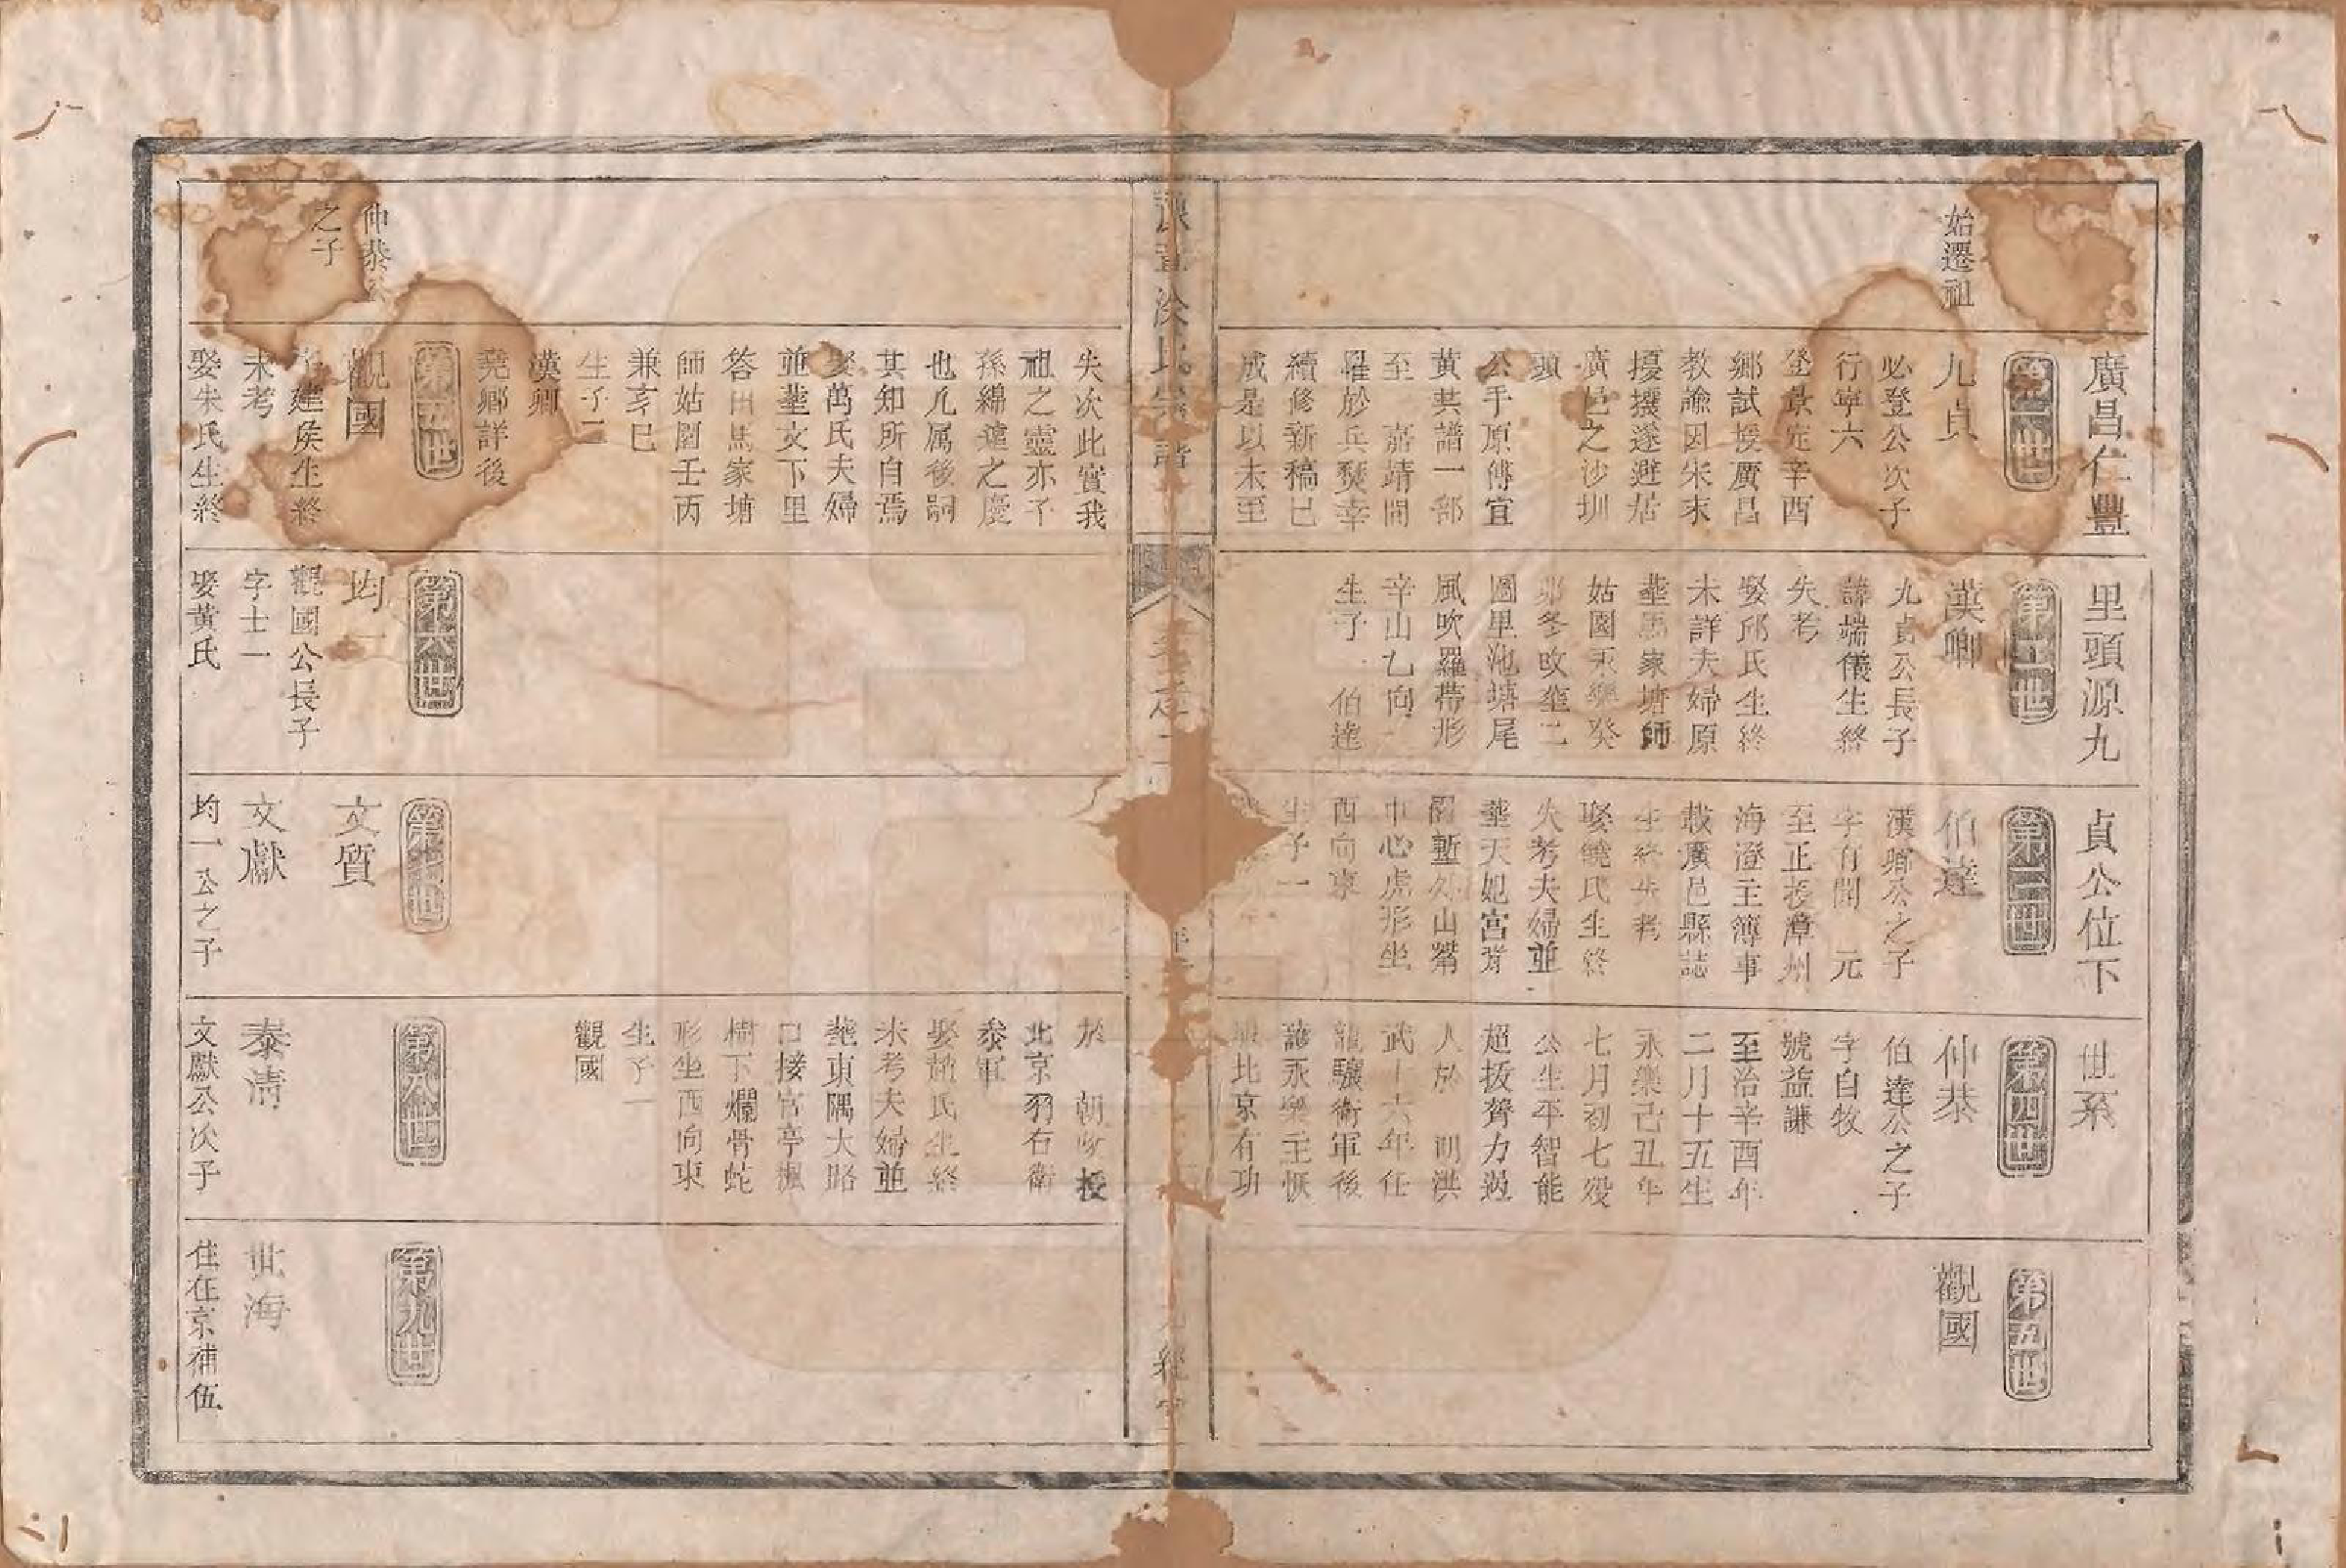 廣昌仁豐里頭源九貞公位下世系
始遷祖
第一世
九貞
必登公次子
行寧六
登景定辛酉
鄉試授廣昌
教諭因宋末
擾攘遂避居
廣邑之沙圳
頭
公手原傳宜
黄共譜一部
至　嘉靖間
罹於兵燹幸
續修新稿已
成是以未至
第二世
漢卿
九貞公長子
諱端儀生終
失考
娶邱氏生終
未詳夫婦原
塟馬家塘師
姑園永樂癸
夘冬改塟二
圖里池塘尾
風吹羅帶形
辛山乙向
生子　伯達
第三世
伯達
漢卿公之子
字有聞　元
至正授漳州
海澄主簿事
載廣邑縣誌
生終失考
娶饒氏生終
失考夫婦並
塟天妃宮背
圳塹外山觜
中心虎形坐
西向東
生子一
第四世
仲恭
伯達公之子
字自牧
號益謙
至治辛酉年
二月十五生
永樂己丑年
七月初七殁
公生平智能
超拔膂力過
人於　明洪
武十六年任
龍驤衛軍後
護永樂主恢
北京有功
第五世
觀國
宗譜
失次此實我
祖之靈亦子
孫綿遠之慶
也凡属後嗣
其知所自焉
娶萬氏夫婦
並塟文下里
答田馬家塘
師姑園壬丙
兼亥巳
生子二
漢卿
堯卿詳後
於　朝欽授
北京羽右衛
叅軍
娶饒氏生終
未考夫婦並
塟東隅大路
口接官亭楓
樹下爛骨蛇
形坐西向東
生子一
觀國
仲恭公
之子
第五世
觀國
字建侯生終
未考
娶朱氏生終
第六世
均一
觀國公長子
字士一
娶黄氏
第七世
文質
文獻
均一公之子
第八世
泰清
文獻公次子
第九世
世海
住在京補伍